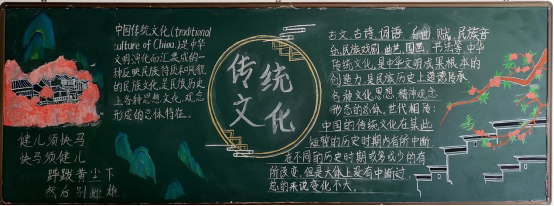 中国传统文化(traditional
culture of China)是中华
文明演化而汇集成的一
种反映民族特质和风貌
的民族文化,是民族历史
上各种思想文化、观念
形态的总体特征。
健儿须快马
快马须健儿
跸跋黄尘下
然后别雄雌
传统
文化
古文、古诗、词语、曲、赋、民族音
乐、民族戏剧、曲艺、国画、书法等,中华
传统文化,是中华文明成果根本的
创造力,是民族历史上道德传承、
各种文化思想、精神观念
形态的总体。世代相传:
中国的传统文化在某些
短暂的历史时期内有所中断,
在不同的历史时期或多或少的有
所改变,但是大体上没有中断过,
总的来说变化不大。